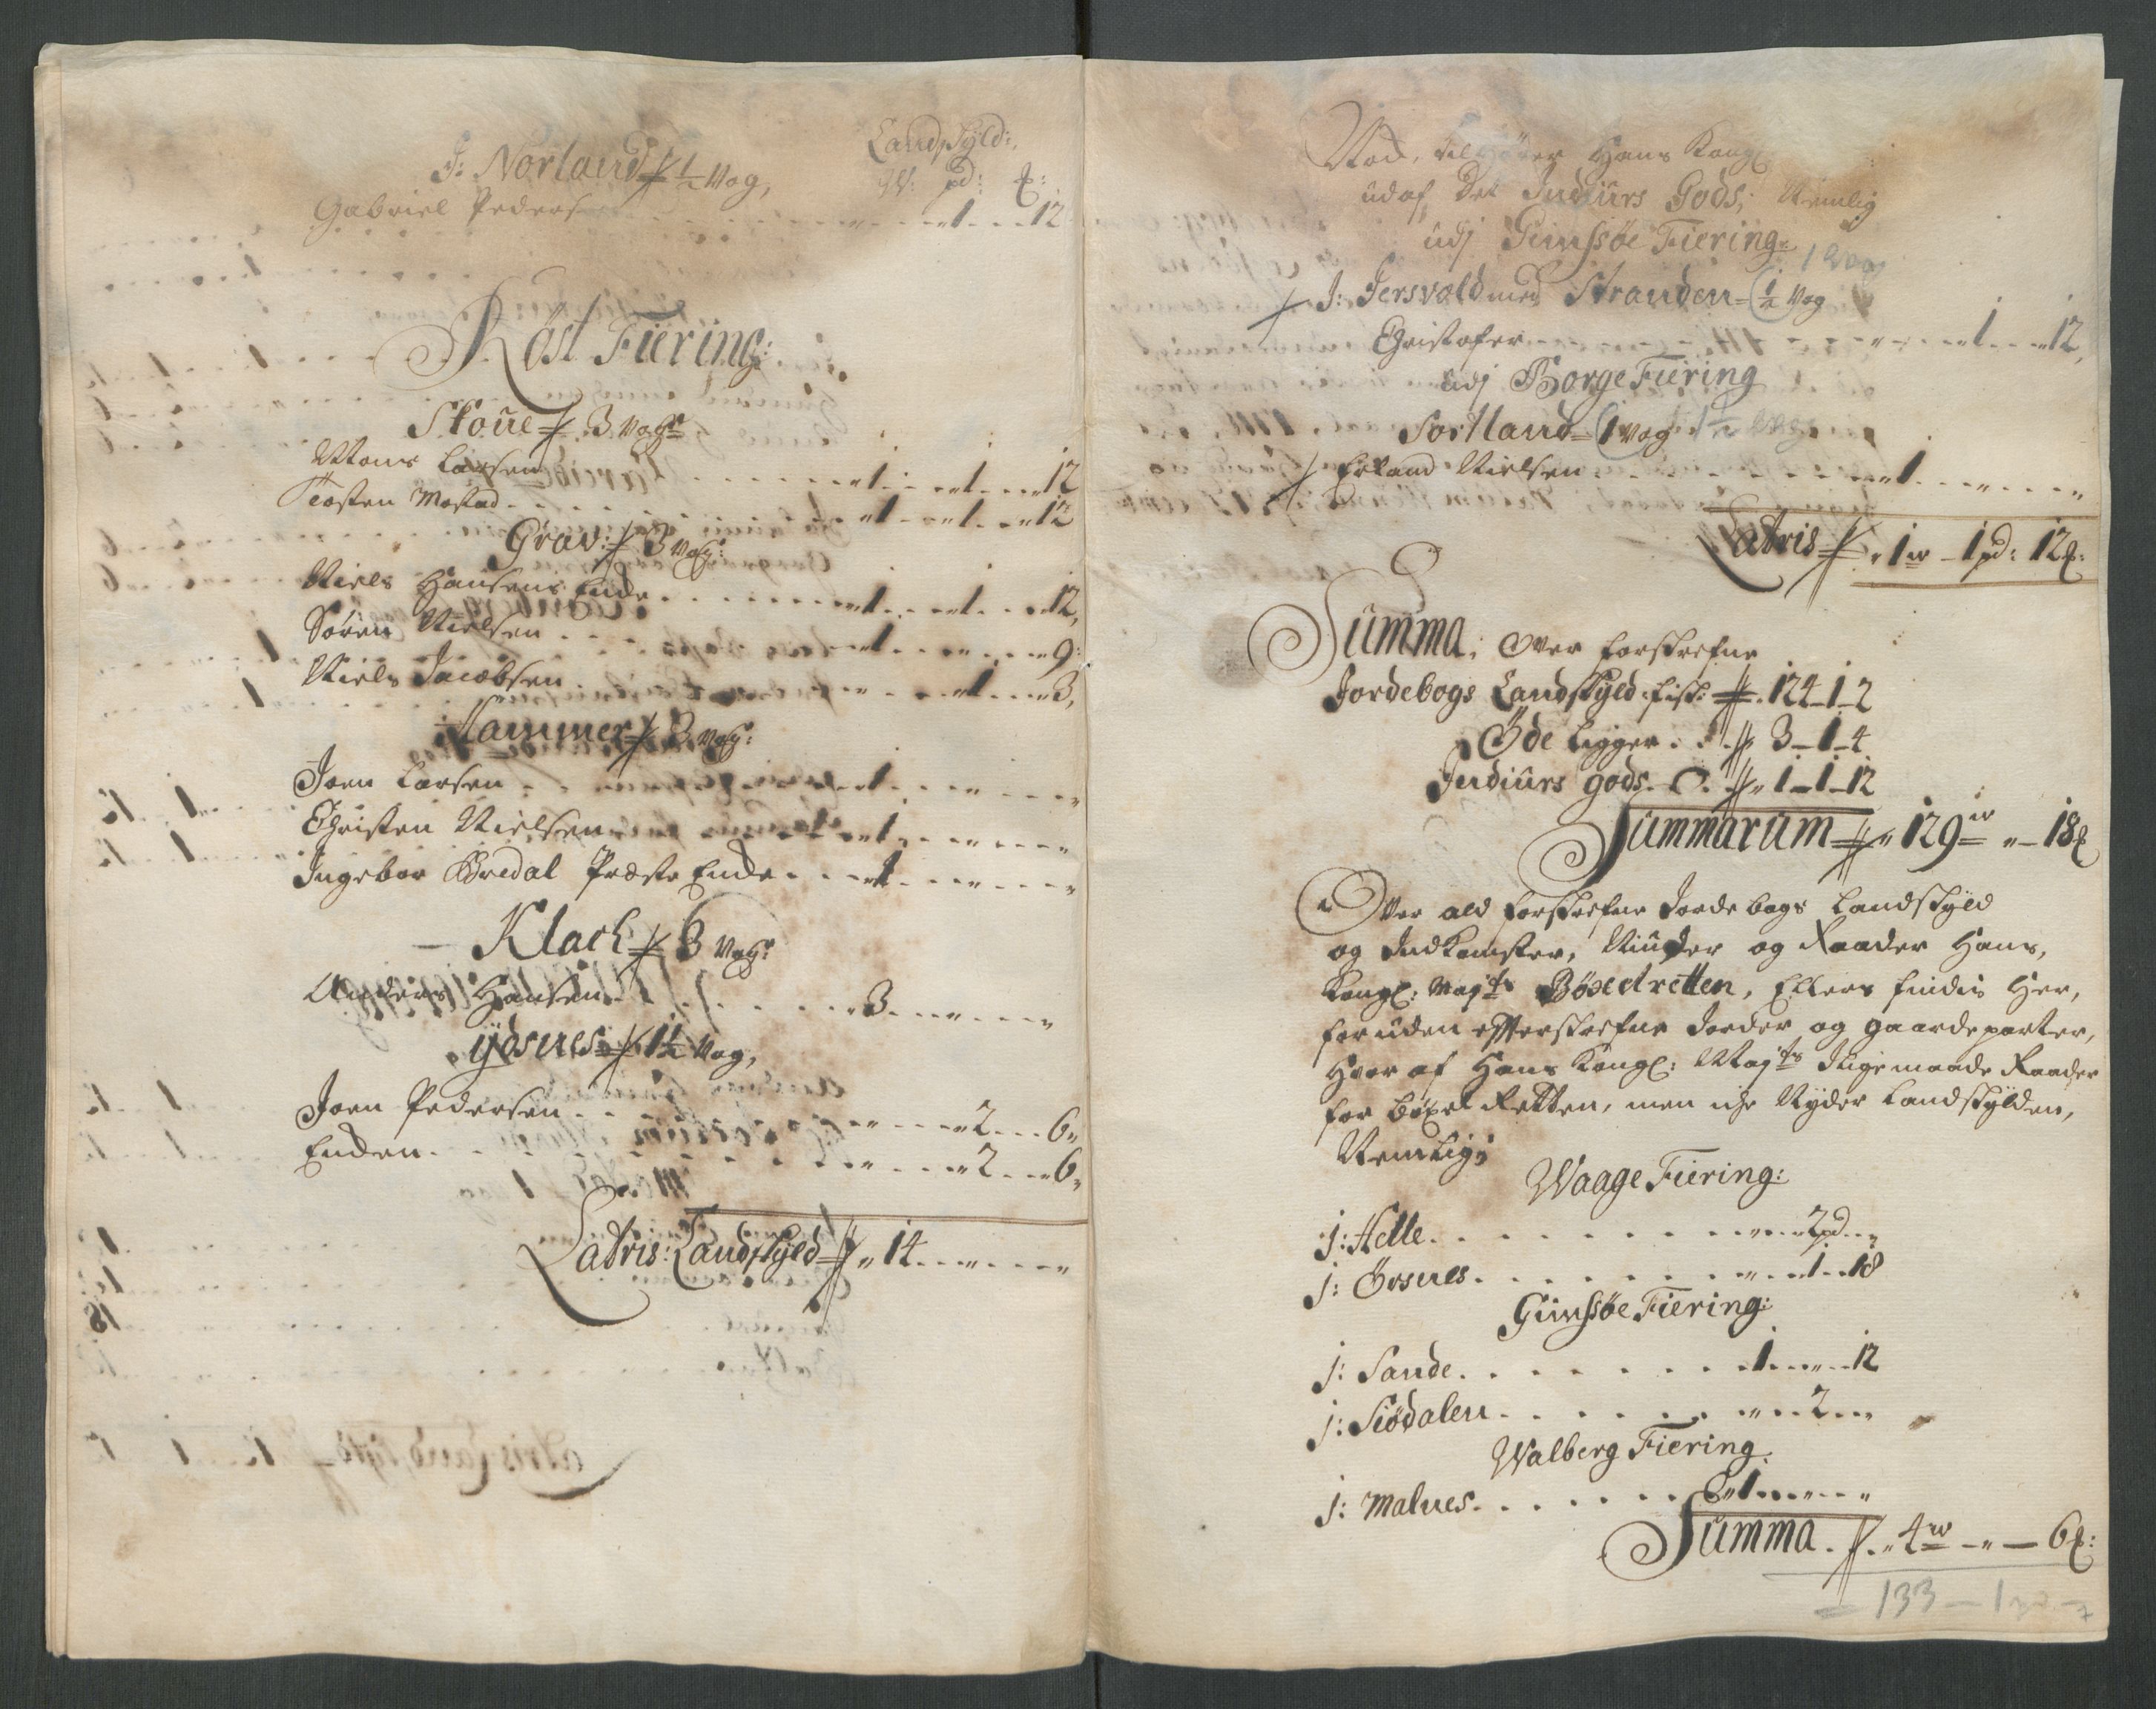 Landskyld:
J: Norland ½ Vog,
W: pd: ℔:
Gabriel Pedersen " 1 12
Röst Fiering:
Skoue 3 Voger
Mons Larsen 1 1 12
Tosten Mostad 1 1 12
Grav: 3 Vog:
Niels Hansens Enke 1 1 12,
Sören Nielsen 1 " 9:
Niels Jacobsen " 1 3,
Hammer 3 Vog:
Joen Larsen 1 " "
Christen Nielsen 1 " "
Ingebor Bredal Præste Enke 1 " "
Klach 3 Voger
Anders Hansen 3 " "
Ydsnes 1½ Vog,
Joen Pedersen " 2 6"
Enken " 2 6"
Latris: Landskyld " 14 " "
Hvad, tilhører Hans Kongl
udaf Det Indiurs Gods, Nemlig
udj Gimssöe Fiering:
1 Vog
J: Jersvold med Stranden ½ Vog
Christofer " 1 12,
udj Borge Fiering
Sortland 1 Vog 1½ Vog
Erland Nielsen 1 " "
Latris " 1 w 1 pd: 12 ℔:
Summa; Over forskrefne
Jordebogs Landskyld: fisk: 124 1 2
Öde ligger 3 1 4
Indiurs gods " 1 1 12
Summarum " 129 w " 18 ℔
Over ald forskrefne Jordebogs Landskyld
og Indkomster, Niuder og Raader Hans,
Kongl: Majts Böxelretten, Ellers findis Her,
foruden efterskrefne Jorder og gaardeparter,
Hvor af Hans Kongl: Majts Ligemaade Raader
for böxel Retten, men iche Nyder Landskylden,
Nemlig;
Waage Fiering:
J: Helle " 2 pd "
J: Örsnes " 1 18
Gimssöe Fiering:
J: Sande 1 " 12
J: Siödalen " 2 "
Walberg Fiering:
J: Malnes 1 " "
Summa " 4 w " 6 ℔:
133 — 1